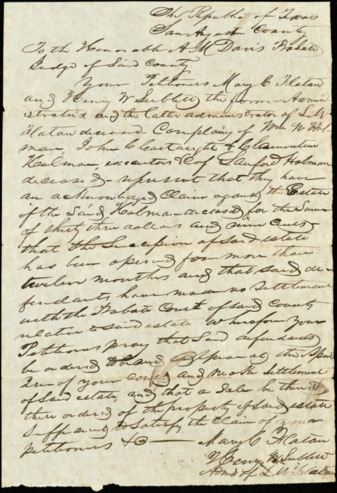 The Republic of Texas
San Augustine County
To the Honorable A M Davis Probate
Judge of Said County
Your Petitioners Mary C
and Henry W Sublett the former Admin
istratrix and the latter administrator of L M
deceased Complaing of Wm W Hol
man, John C Cartwright & Clementine
Holman, executors &c of Sanford Holman
deceased represent that they have
an acknowledged Claim against the Estate
of the Said Holman deceased for the Sum
of thirty three dollars and nine Cents
that the Succession of said estate
has been opened for more than
twelve months and that said de
fendants have made no Settlement
with the Probate Court of said County
relative to said estate Wherefore your
Petitioners pray that Said defendants
be ordered to be and appear at the
Term of your court and make settlement
of said estate, and that a Sale be then &
there ordered of the property of said estate
sufficient to Satisfy the Claim of your
petitioners &c
Mary C
Henry W Sublett
Admr of L M